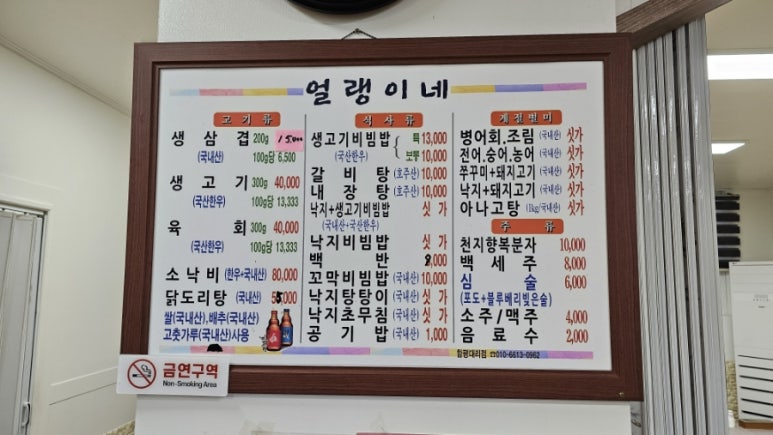 얼랭이네
고기류
생삼겹 200g 15,000
(국내산) 100g당 6,500
생고기 300g 40,000
(국산한우) 100g당 13,333
육회 300g 40,000
(국산한우) 100g당 13,333
소낙비 (한우+국내산) 80,000
닭도리탕 (국내산)
쌀(국내산), 배추(국내산)
고춧가루(국내산)사용
식사류
생고기비빔밥 특 13,000
(국산한우) 보통 10,000
갈비탕 (호주산) 10,000
내장탕 (호주산) 10,000
낙지+생고기비빔밥 싯가
(국내산+국산한우)
낙지비빔밥 싯가
백반 8,000
꼬막비빔밥 (국내산) 10,000
낙지탕탕이 (국내산) 싯가
낙지초무침 (국내산) 싯가
공기밥 (국내산) 1,000
계절별미
병어회,조림 (국내산) 싯가
전어,숭어,농어 (국내산) 싯가
쭈꾸미+돼지고기 (국내산) 싯가
낙지+돼지고기 (국내산) 싯가
아나고탕 (1kg/국내산) 싯가
주류
천지향복분자 10,000
백세주 8,000
심술 6,000
(포도+블루베리빚은술)
소주/맥주 4,000
음료수 2,000
함평대리점 ☎010-6613-0962
금연구역
Non-Smoking Area